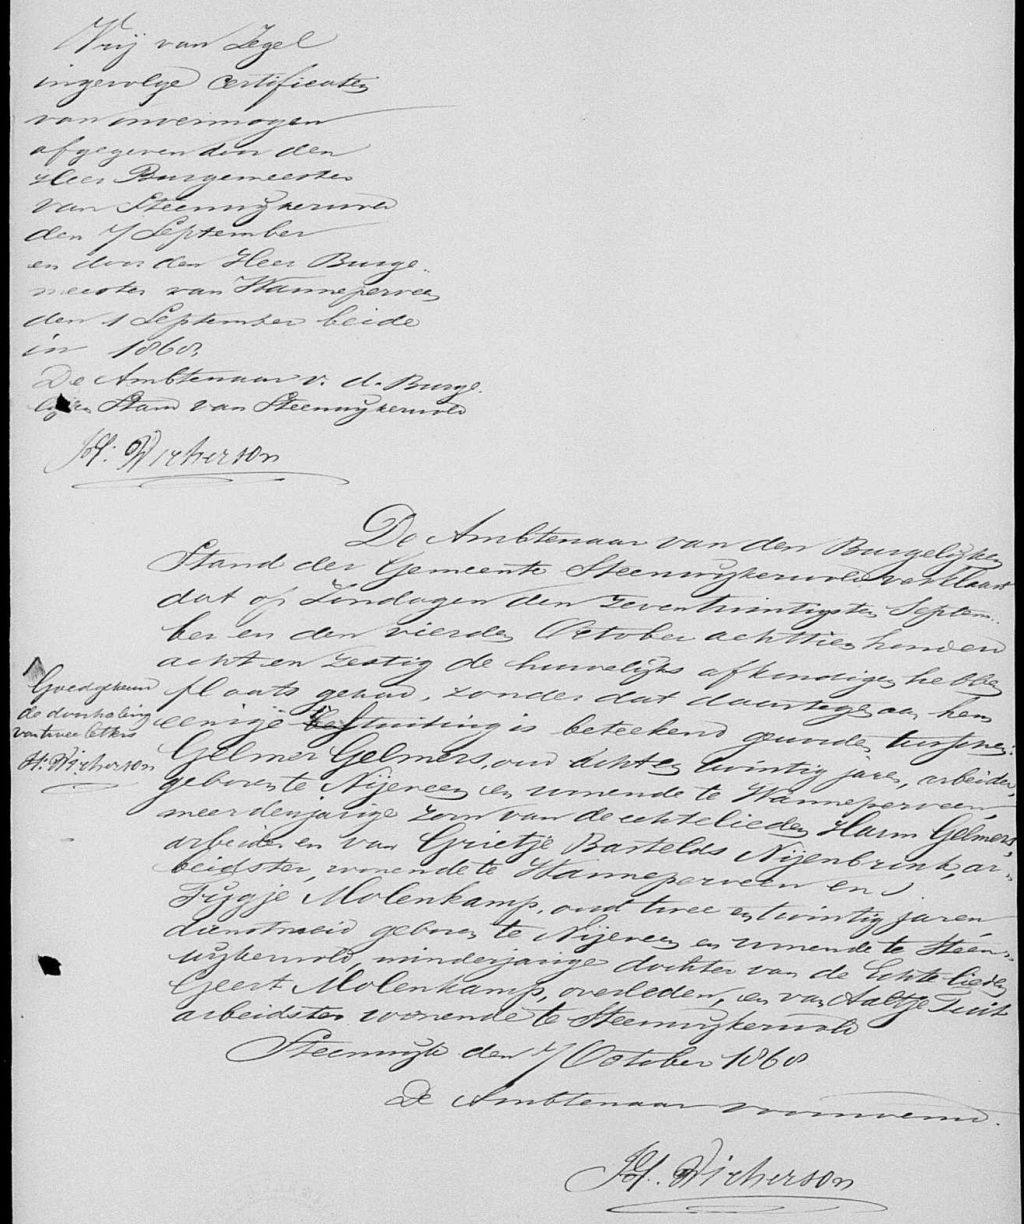 Vrij van Zegel
ingevolge certificaten
van onvermogen
afgegeven door den
Heer Burgemeester
van Steenwijkerwold
den 7 September
en door den Heer Burge„
meester van Wanneperveen
den 1 September beide
in 1868.
De Ambtenaar v. d. Burge.
lijken Stand van Steenwijkerwold
H. Wicherson
De Ambtenaar van den Burgelijken
Stand der Gemeente Steenwijkerwold verklaart
dat op Zondagen den zeventwintigsten Septem„
ber en den vierden October achttien honderd
acht en zestig de huwelijks afkondigen hebben
plaats gehad, zonder dat daartegen aan hem
eenige stuiting is beteekend geworden tusschen:
Goedgekeurd
de doorhaling
van twee letters
H. Wicherson
Gelmer Gelmers, oud acht en twintig jaren, arbeider,
geboren te Nijeveen en wonende te Wanneperveen
meerderjarige zoon van de echtelieden Harm Gelmers,
arbeider en van Grietje Bartelds Nijenbrink, ar„
beidster, wonende te Wanneperveen en
Fijgje Molenkamp, oud twee en twintig jaren
dienstmeid geboren te Nijeveen en wonende te Steen„
wijkerwold, minderjarige dochter van de Echtelieden
Geert Molenkamp, overleden, en van Aaltje Tuit
arbeidster wonende te Steenwijkerwold
Steenwijk den 7 October 1868
De Ambtenaar voornoemd.
H. Wicherson